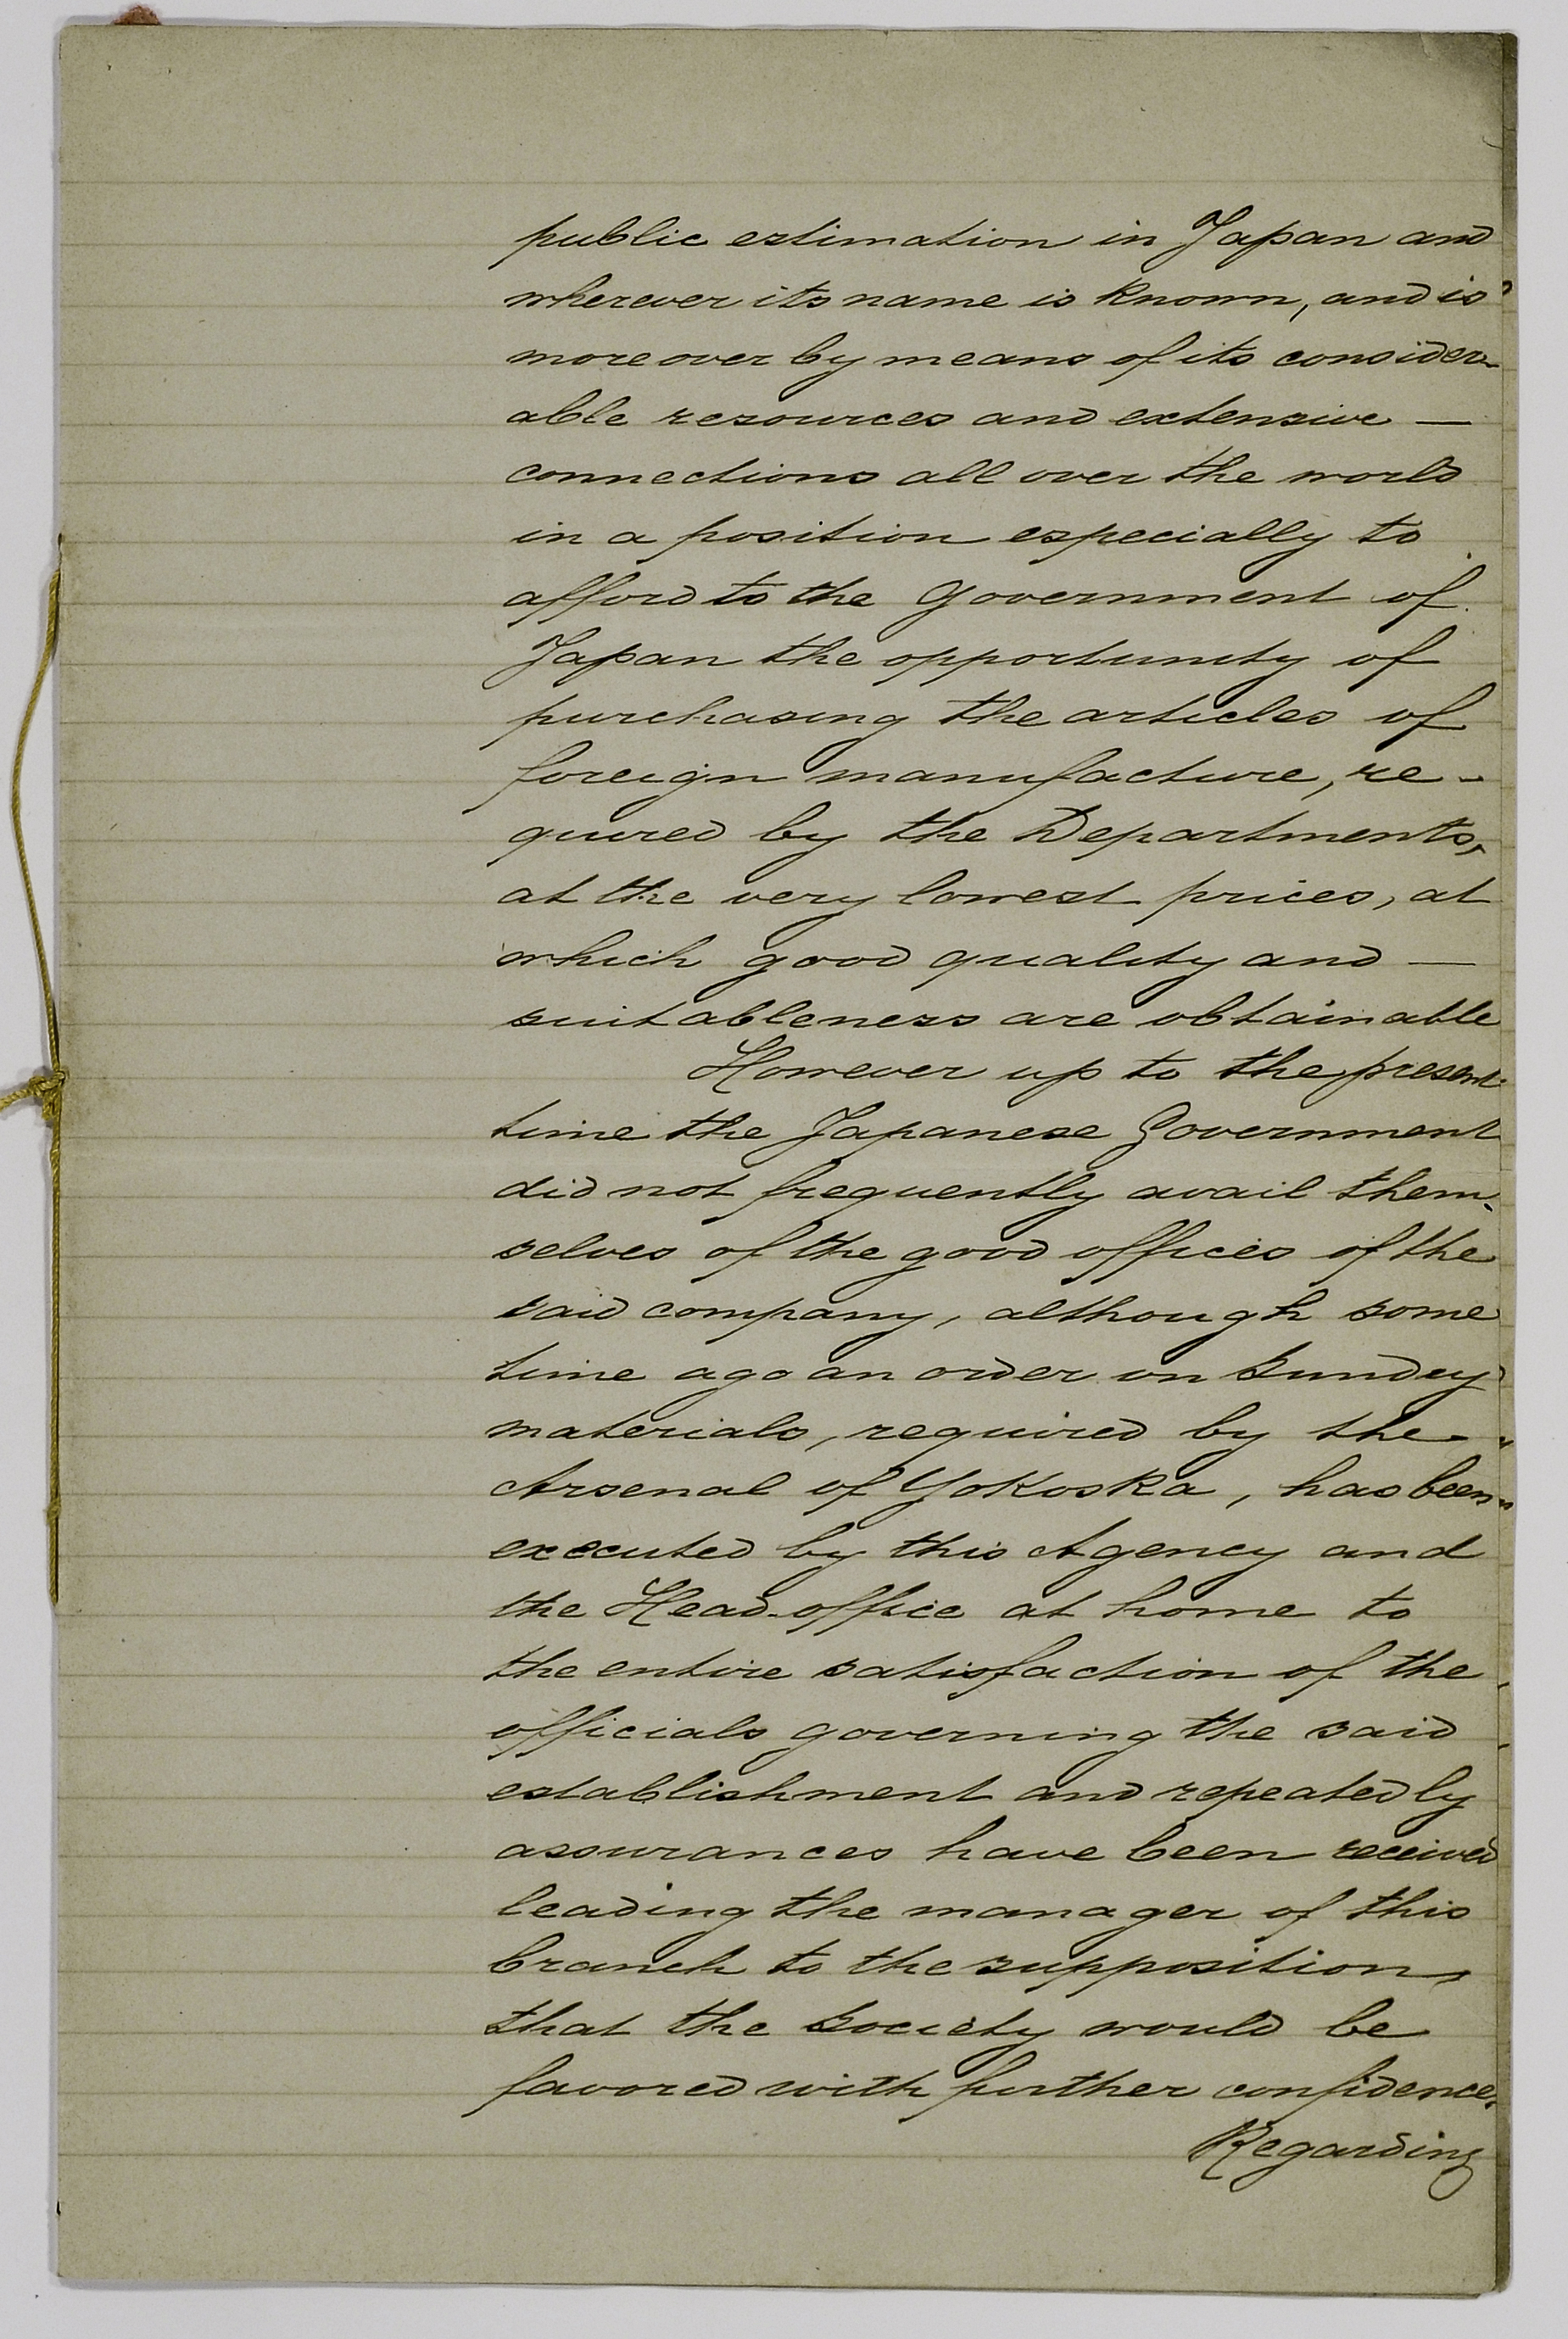 public estimation in Japan and
wherever its name is known, and is
moreover by means of its consider-
able resources and extensive —
connections all over the world
in a position especially to
afford to the Government of
Japan the opportunity of
purchasing the articles of
foreign manufacture, re-
quired by the Departments,
at the very lowest prices, at
which good quality and —
suitableness are obtainable
However up to the present
time the Japanese Government
did not frequently avail them-
selves of the good offices of the
said company, although some
time ago an order on Sundry
materials, required by the
Arsenal of Yokoska, has been
executed by this Agency and
the Head-office at home to
the entire satisfaction of the
officials governing the said
establishment and repeatedly
assurances have been received
leading the manager of this
branch to the supposition,
that the Society would be
favored with further confidence.
Regarding